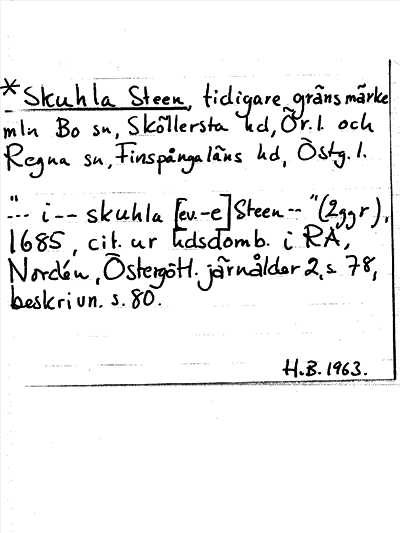 * Skuhla Steen, tidigare gränsmärke
mln Bo sn, Sköllersta hd, Ör. l. och
Regna sn, Finspångaläns hd, Östg. l.
"--- i -- skuhla [ev. -e] Steen -- " (2 ggr),
1685, cit. ur hdsdomb. i RA,
Nordén, Östergötl. järnålder 2, s. 78,
beskrivn. s. 80.
H.B. 1963.